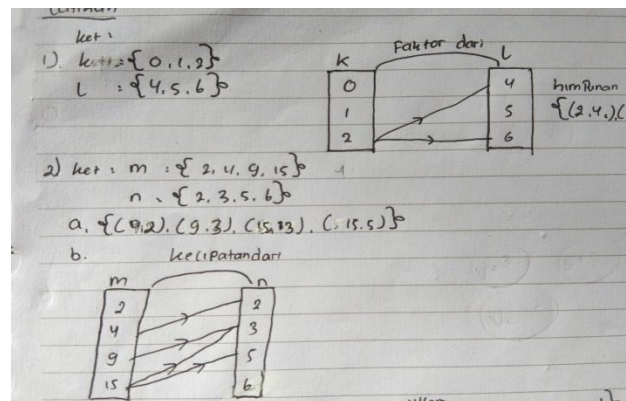 Latihan
ket :
1) k : {0, 1, 2}
L : {4, 5, 6}
Faktor dari
k L
0 4
1 5
2 6
himpunan
{(2,4),(
2) ket : m : {2, 4, 9, 15}
n : {2, 3, 5, 6}
a. {(9,2), (9,3), (15,3), (15,5)}
b. kelipatan dari
m n
2 2
4 3
9 5
15 6